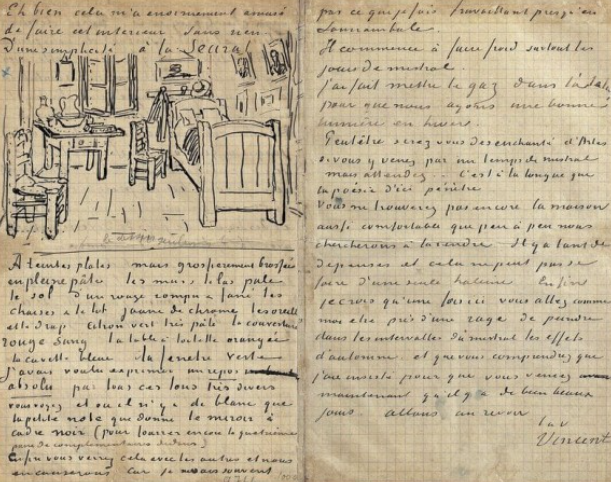 Eh bien cela m'a enormement amusé
de faire cet interieur sans rien
D'une simplicité à la Seurat
A teintes plates mais grossierement brossées
en pleine pâte les murs lilas pale
le sol d'un rouge rompu & fané les
chaises & le lit jaune de chrome les oreillers
et le drap citron vert très pâle la couverture
rouge sang la table à toilette orangée
la cuvette bleue la fenetre verte
j'avais voulu exprimer un repos
absolu par tous ces tons très divers
vous voyez et où il n'y a de blanc que
la petite note que donne le miroir à
cadre noir (pour fourrer encore la quatrième
paire de complementaires dedans)
Enfin vous verrez cela avec les autres et nous
en causerons car je ne sais souvent
pas ce que je fais travaillant presqu'en
somnambule.
Il commence à faire froid surtout les
jours de mistral.
j'ai fait mettre le gaz dans l'atelier
pour que nous ayons une bonne
lumière en hiver.
Peutêtre serez vous desenchanté d'Arles
si vous y venez par un temps de mistral
mais attendez .. C'est à la longue que
la poésie d'ici pénètre
Vous ne trouverez pas encore la maison
aussi comfortable que peu à peu nous
chercherons à la rendre Il y a tant de
depenses et cela ne peut pas se
faire d'une seule haleine Enfin
je crois qu'une fois ici vous allez comme
moi etre pris d'une rage de peindre
dans les intervalles du mistral les effets
d'automne et que vous comprendrez que
j'aie insisté pour que vous venez
maintenant qu'il y a de bien beaux
jours allons au revoir
t.av.
Vincent